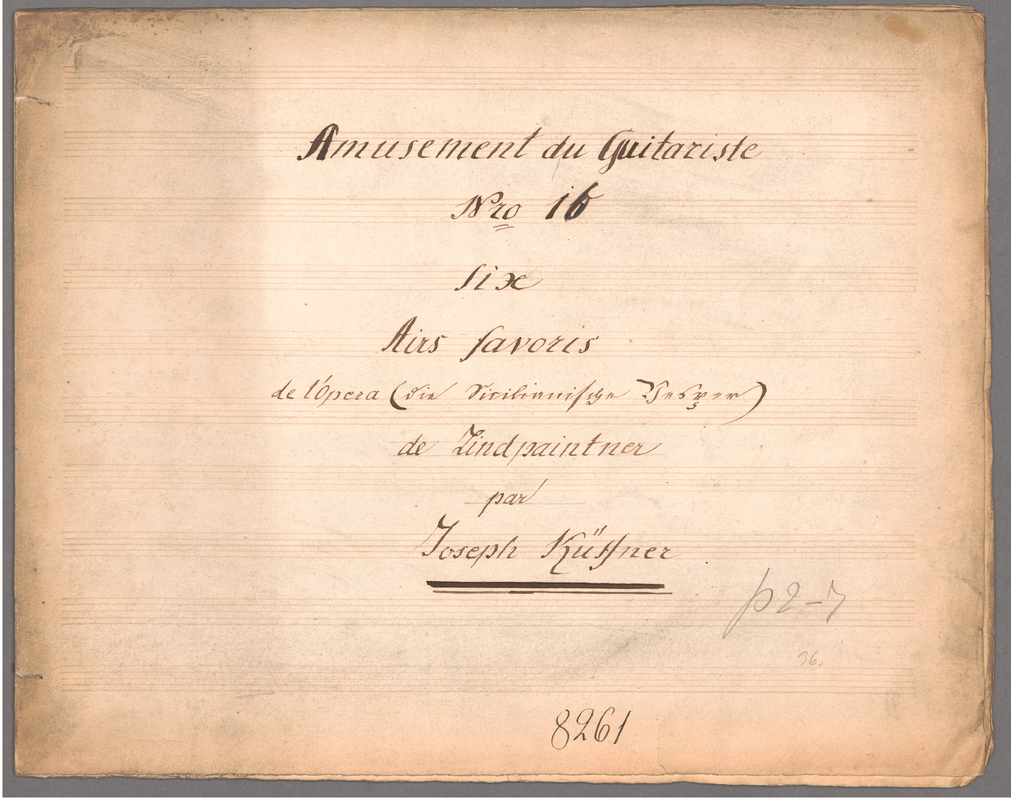 Amusement du Guitariste
Nro 16
six
Airs favoris
de l'Opera (die Sicilianische Vesper)
de Lindpaintner
par
Joseph Küffner
p 2-7
36.
8261